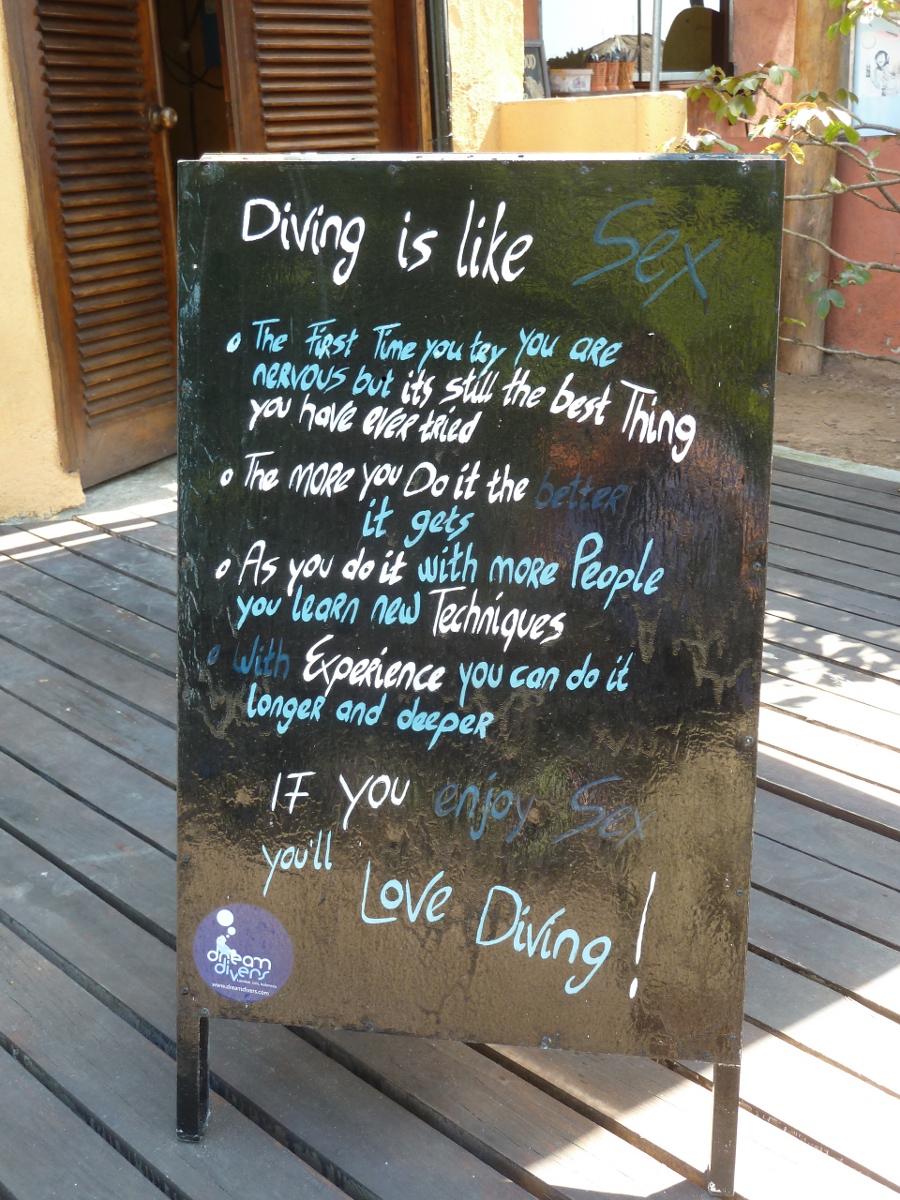 Diving is like Sex
o The First Time you try you are
nervous but its still the best Thing
you have ever tried
o The more you Do it the better
it gets
o As you do it with more People
you learn new Techniques
o With Experience you can do it
longer and deeper
If you enjoy Sex
you'll
Love Diving!
dream
divers
www.dreamdivers.com